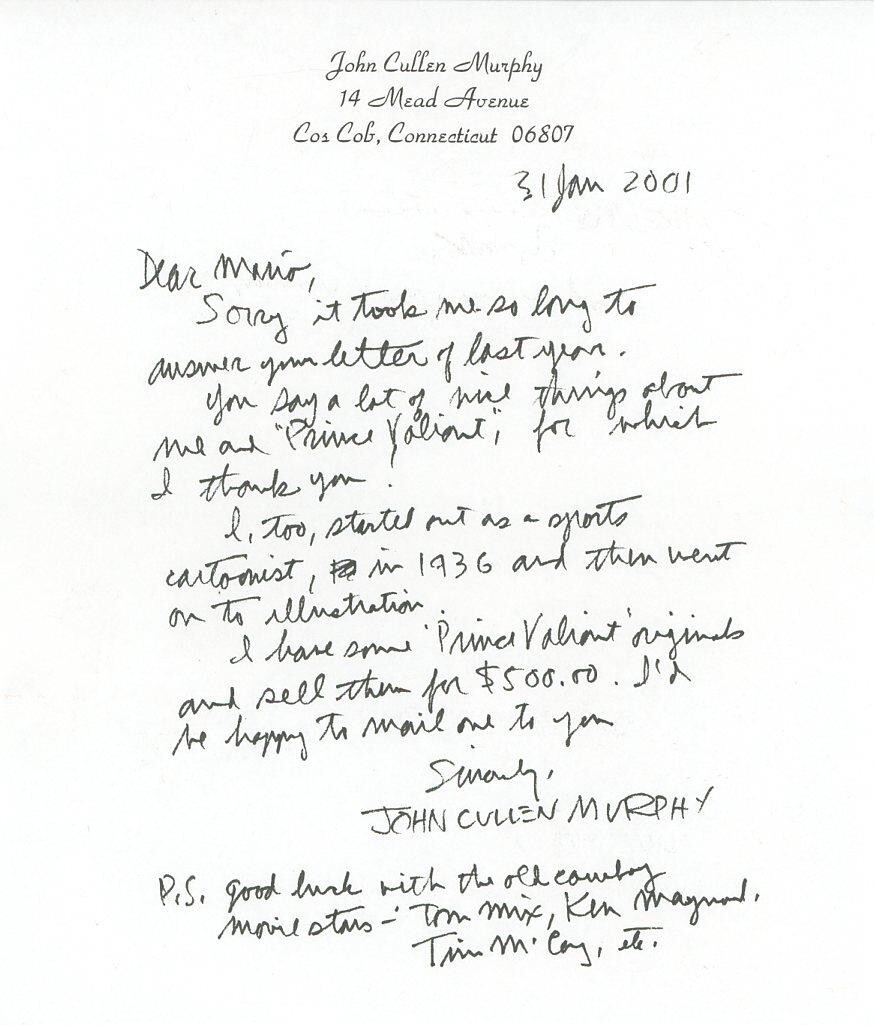 John Cullen Murphy
14 Mead Avenue
Cos Cob, Connecticut 06807
31 Jan 2001
Dear Mario,
Sorry it took me so long to
answer your letter of last year.
You say a lot of nice things about
me and "Prince Valiant", for which
I thank you.
I, too, started out as a sports
cartoonist, in 1936 and then went
on to illustration.
I have some "Prince Valiant" originals
and sell them for $500.00. I'd
be happy to mail one to you
Sincerely,
JOHN CULLEN MURPHY
P.S. good luck with the old cowboy
movie stars - Tom Mix, Ken Maynard,
Tim McCoy, etc.